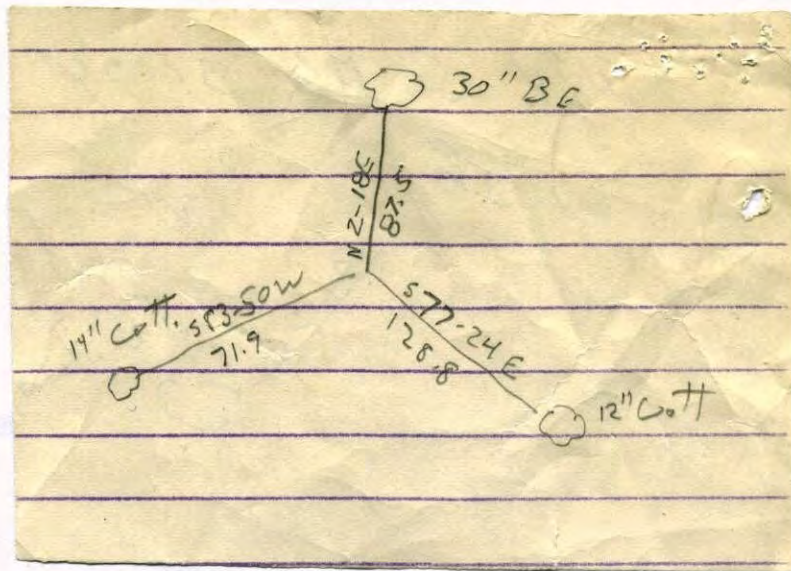 30" BE
N 2-18E
87.5
14" Cott.
S83-50W
71.9
S77-24E
128.8
12" Cott